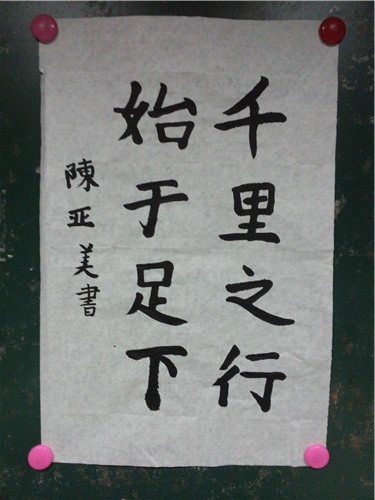 千里之行
始于足下
陳亚美書